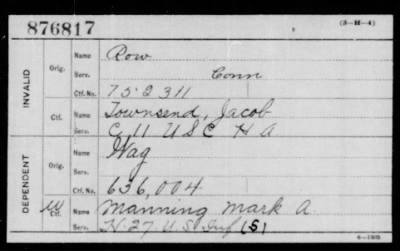 876817 (3-H-4)
INVALID
Orig. Name Row
Serv. Conn
Ctf. No. 752311
Ctf. Name Townsend, Jacob
Serv. C 11 U S C H A
DEPENDENT
Orig. Name Wag
Serv.
Ctf. No. 636,004
W Ctf. Name Manning Mark A
Serv. H. 27 U.S. Inf (S)